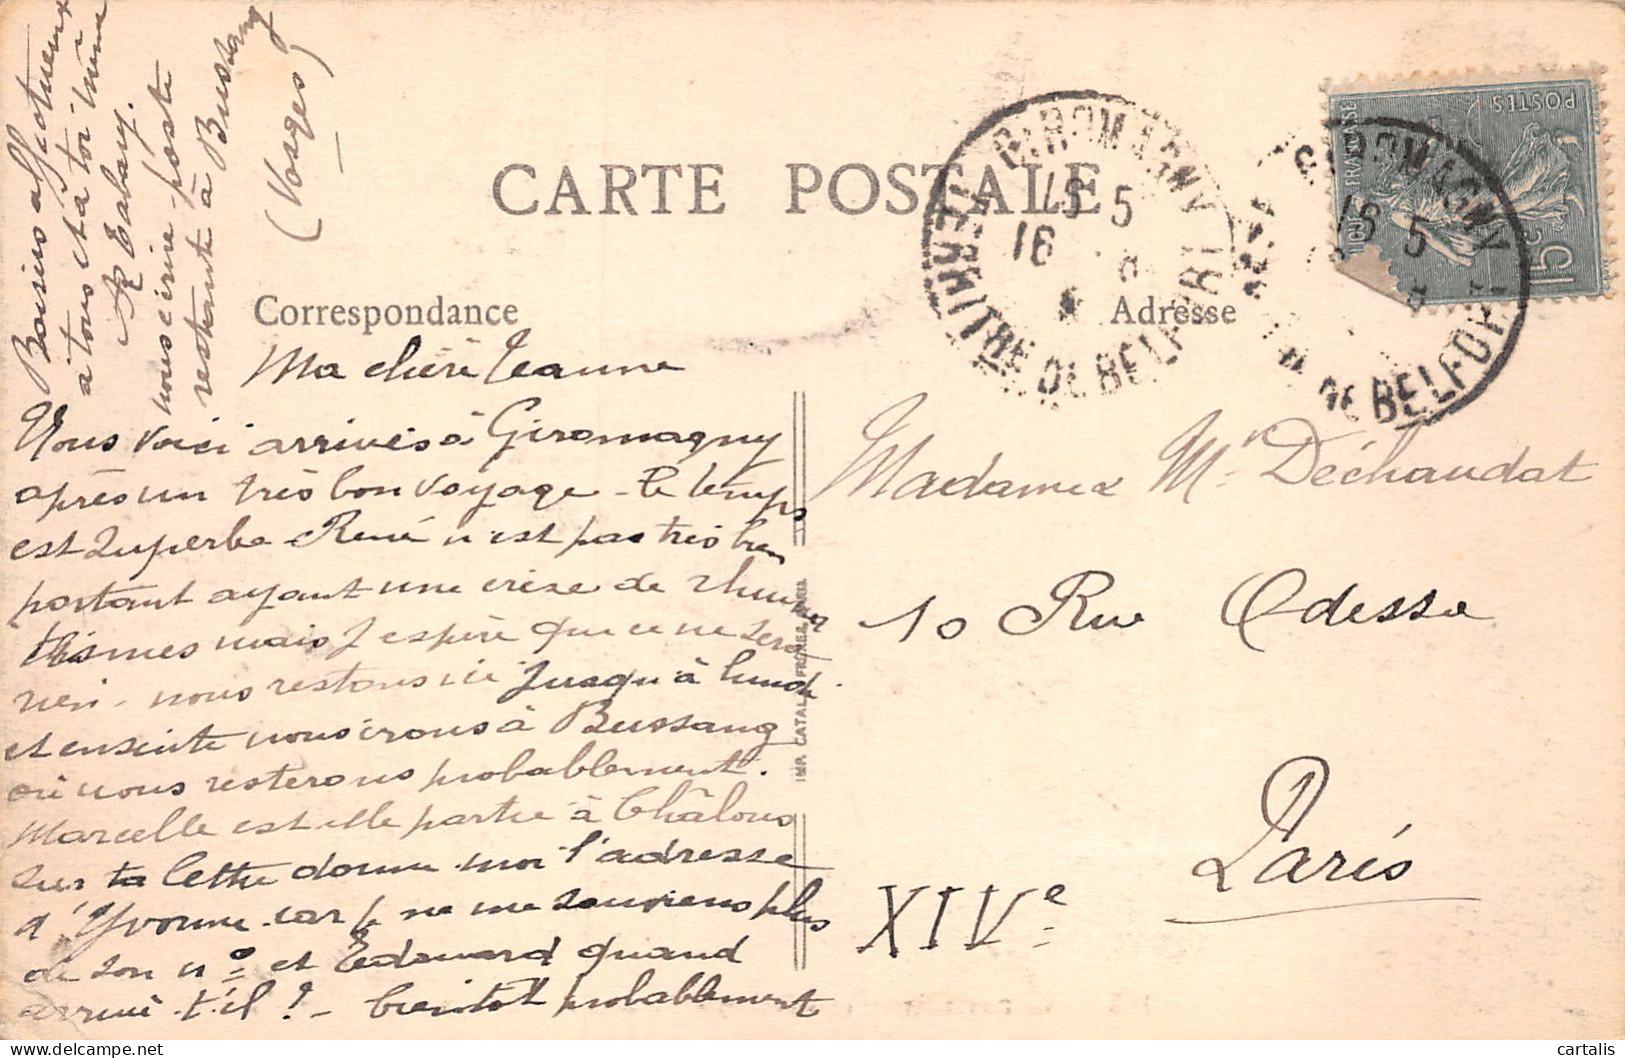 CARTE POSTALE
Correspondance
Adresse
Ma chère Jeanne
Nous voici arrivés à Giromagny
après un très bon voyage - le temps
est superbe - René n'est pas très bien
portant ayant une crise de rhuma
tismes mais j'espère que ce ne sera
rien - nous restons ici jusqu'à lundi
et ensuite nous irons à Bussang
où nous resterons probablement.
Marcelle est elle partie à Châlons
sur ta lettre donne moi l'adresse
d'Yvonne car je ne me souviens plus
de son n° et Edouard quand
arrive-t-il ? - bientôt probablement
Baisers affectueux
à tous et à toi même
nous écrire poste
restante à Bussang
(Vosges)
Madame Mce Déchaudat
10 Rue Odessa
Paris
XIVe
GIROMAGNY
16 5
16
TERRITRE DE BELFORT
GIROMAGNY
16 5
DE BELFORT
POSTES
FRANÇAISE
15c
IMP. CATALA FRERES, PARIS
cartalis